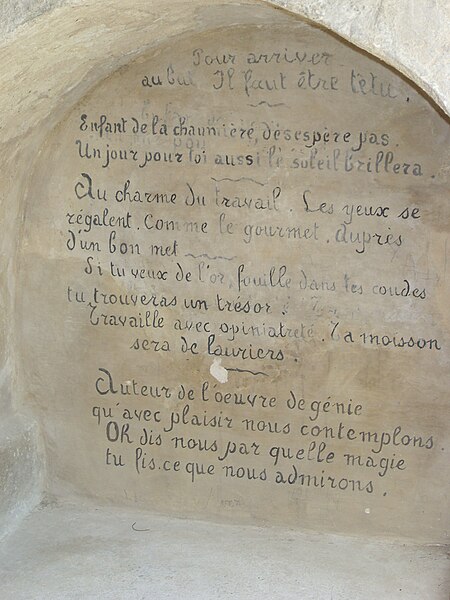 Pour arriver
au but Il faut être têtu.
Enfant de la chaumière, désespère pas.
Un jour pour toi aussi le soleil brillera.
Au charme du travail. Les yeux se
régalent. Comme le gourmet. Auprès
d'un bon met
Si tu veux de l'or, fouille dans tes coudes
tu trouveras un trésor.
Travaille avec opiniatreté. Ta moisson
sera de lauriers.
Auteur de l'oeuvre de génie
qu'avec plaisir nous contemplons.
Oh dis nous par quelle magie
tu fis.ce que nous admirons.